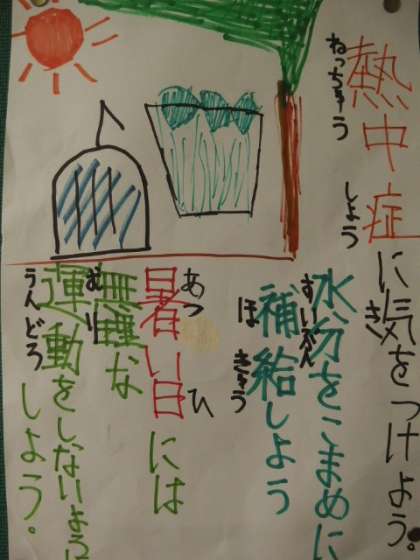 熱中症に気をつけよう。
ねっちゅうしょう き
水分をこまめに
すいぶん
補給しよう
ほきゅう
暑い日には
あつ ひ
無理な
むり
運動をしないよう
うんどう
しよう。